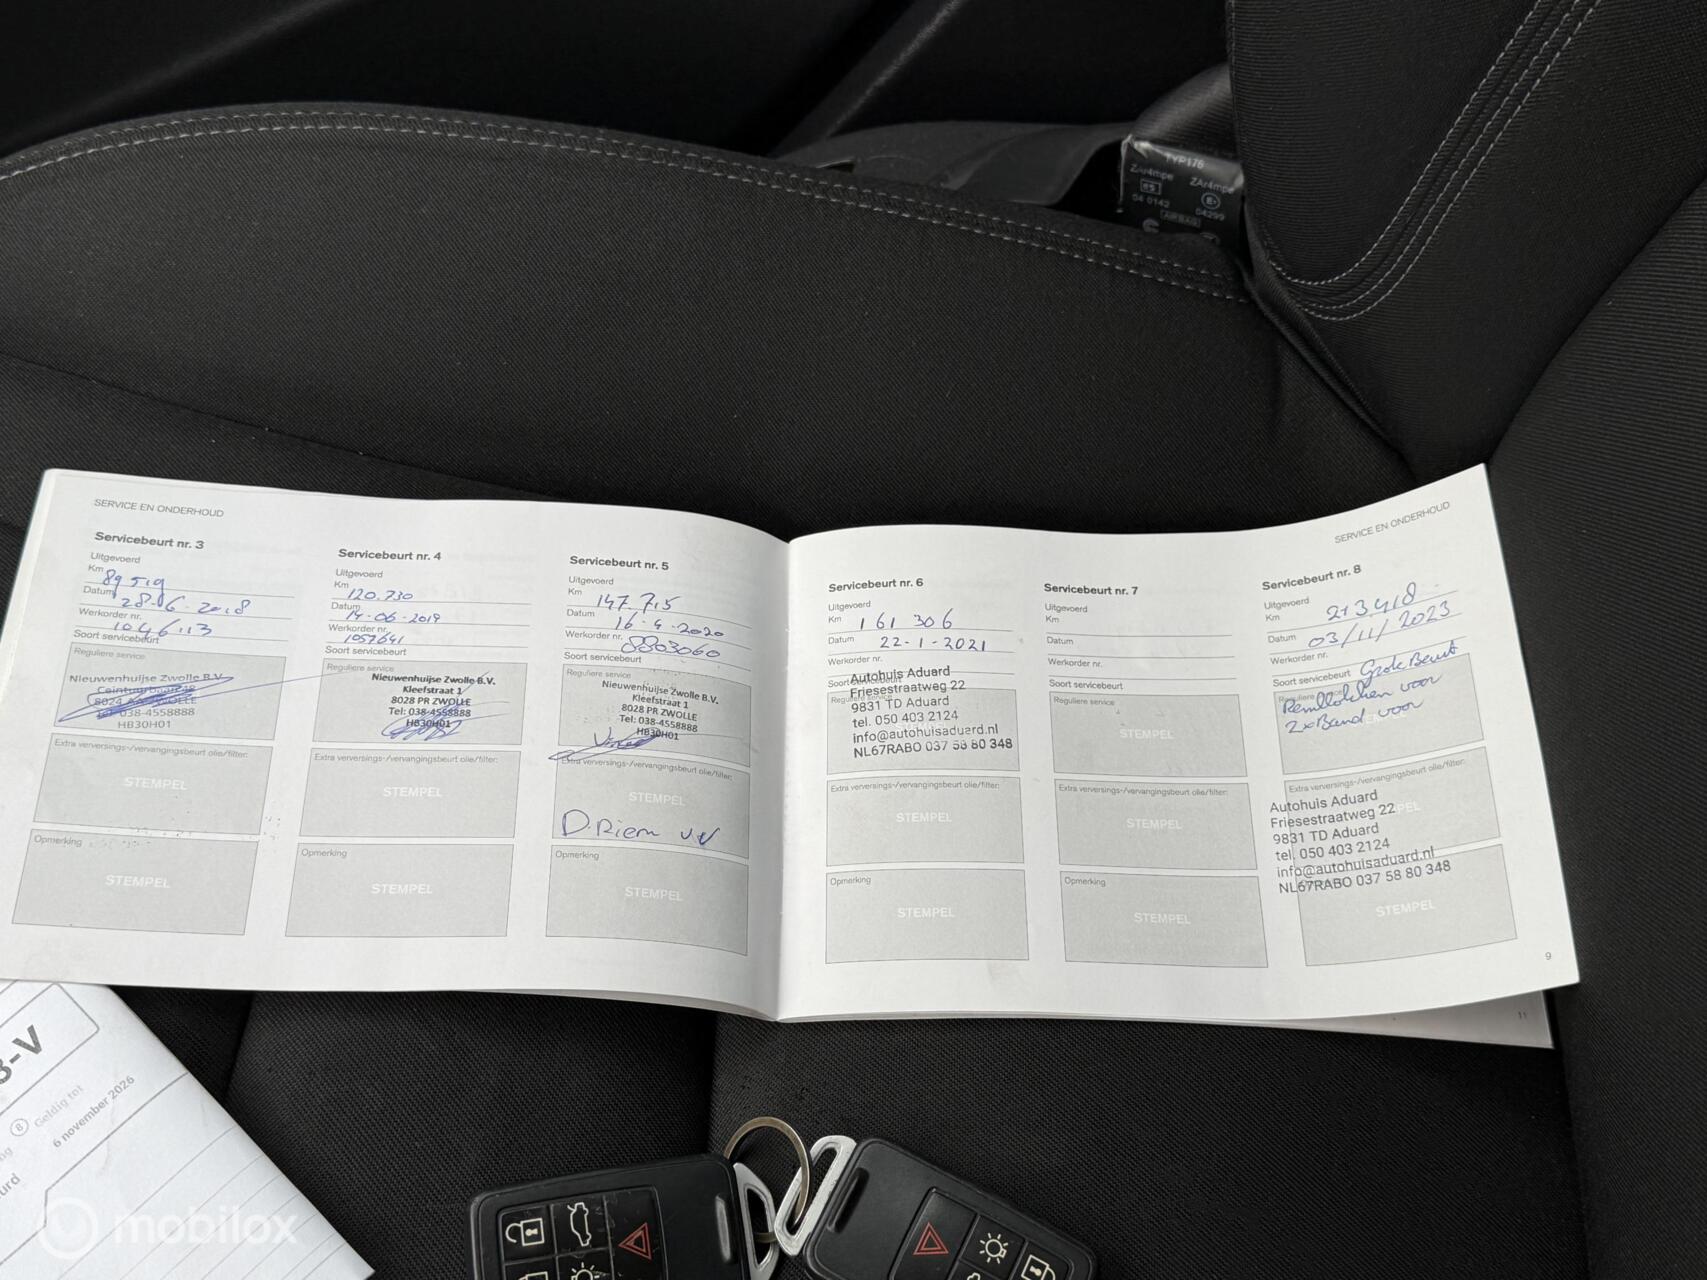 TYP176
ZAr4mpe ZAr4mpe
e5 E
04 0142 04299
AIRBAG
SERVICE EN ONDERHOUD
Servicebeurt nr. 3
Uitgevoerd
Km 89 519
Datum 28-06-2018
Werkorder nr. 1046113
Soort servicebeurt
Reguliere service
Nieuwenhuijse Zwolle B.V.
ZWOLLE
Tel: 038-4558888
HB30H01
Extra verversings-/vervangingsbeurt olie/filter:
STEMPEL
Opmerking
STEMPEL
Servicebeurt nr. 4
Uitgevoerd
Km 120.730
Datum 14-06-2019
Werkorder nr. 1057641
Soort servicebeurt
Reguliere service
Nieuwenhuijse Zwolle B.V.
Kleefstraat 1
8028 PR ZWOLLE
Tel: 038-4558888
HB30H01
Extra verversings-/vervangingsbeurt olie/filter:
STEMPEL
Opmerking
STEMPEL
Servicebeurt nr. 5
Uitgevoerd
Km 147.715
Datum 16-4-2020
Werkorder nr. 8803060
Soort servicebeurt
Reguliere service
Nieuwenhuijse Zwolle B.V.
Kleefstraat 1
8028 PR ZWOLLE
Tel: 038-4558888
HB30H01
Extra verversings-/vervangingsbeurt olie/filter:
STEMPEL
D.Riem
Opmerking
STEMPEL
Servicebeurt nr. 6
Uitgevoerd
Km 161 306
Datum 22-1-2021
Werkorder nr.
Autohuis Aduard
Friesestraatweg 22
9831 TD Aduard
tel. 050 403 2124
info@autohuisaduard.nl
NL67RABO 037 58 80 348
Extra verversings-/vervangingsbeurt olie/filter:
STEMPEL
Opmerking
STEMPEL
Servicebeurt nr. 7
Uitgevoerd
Km
Datum
Werkorder nr.
Soort servicebeurt
Reguliere service
STEMPEL
Extra verversings-/vervangingsbeurt olie/filter:
STEMPEL
Opmerking
STEMPEL
SERVICE EN ONDERHOUD
Servicebeurt nr. 8
Uitgevoerd
Km 213.418
Datum 03/11/2023
Werkorder nr.
Soort servicebeurt Grote Beurt
Reguliere service
Remblokken voor
2x Band voor
Extra verversings-/vervangingsbeurt olie/filter:
Autohuis Aduard
Friesestraatweg 22
9831 TD Aduard
tel. 050 403 2124
info@autohuisaduard.nl
NL67RABO 037 58 80 348
STEMPEL
9
11
3-V
8 Geldig tot
6 november 2026
mobilox